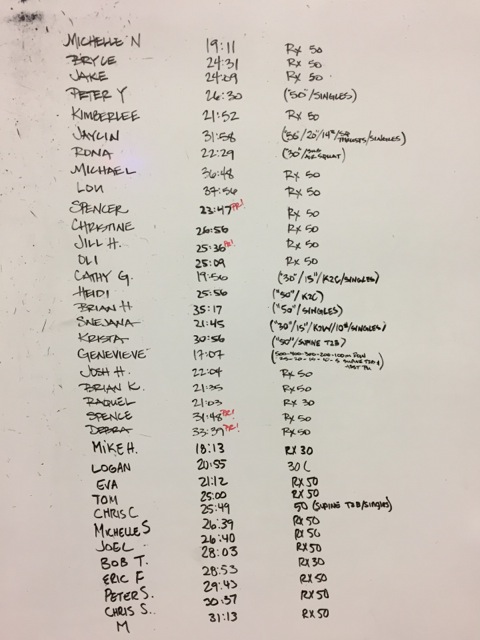 MICHELLE N 19:11 RX 50
BRYCE 24:31 RX 50
JAKE 24:09 RX 50
PETER Y 26:30 ("50"/SINGLES)
KIMBERLEE 21:52 RX 50
JAYLIN 31:58 THRUSTS/SINGLES)
RONA 22:29 ("30" SQUAT)
MICHAEL 36:48 RX 50
LOU 37:56 RX 50
SPENCER 23:47 PR! RX 50
CHRISTINE 26:56 RX 50
JILL H. 25:36 PR! RX 50
OLI 25:09 RX 50
CATHY G. 19:56 ("30"/15"/K2C/SINGLES)
HEIDI 25:56 ("50"/K2C)
BRIAN H 35:17 ("50"/SINGLES)
SNEJANA 21:45 ("30"/15"/SINGLES)
KRISTA 30:56 ("50"/SUPINE T2B)
GENEVIEVE 17:07 (500-400-300-200-100m ROW SUPINE T2B
JOSH H. 22:04 RX 50
BRIAN K. 21:35 RX 50
RAQUEL 21:03 RX 30
SPENCE 31:48 PR! RX 50
DEBRA 33:39 PR! RX 50
MIKE H. 18:13 RX 30
LOGAN 20:55 30 (
EVA 21:12 RX 50
TOM 25:00 RX 50
CHRIS C 25:49 50 (SUPINE T2B/SINGLES)
MICHELLE S 26:39 RX 50
JOEL 26:40 RX 50
BOB T. 28:03 RX 50
ERIC F 28:53 RX 30
PETER S. 29:43 RX 50
CHRIS S. 30:57 RX 50
M 31:13 RX 50